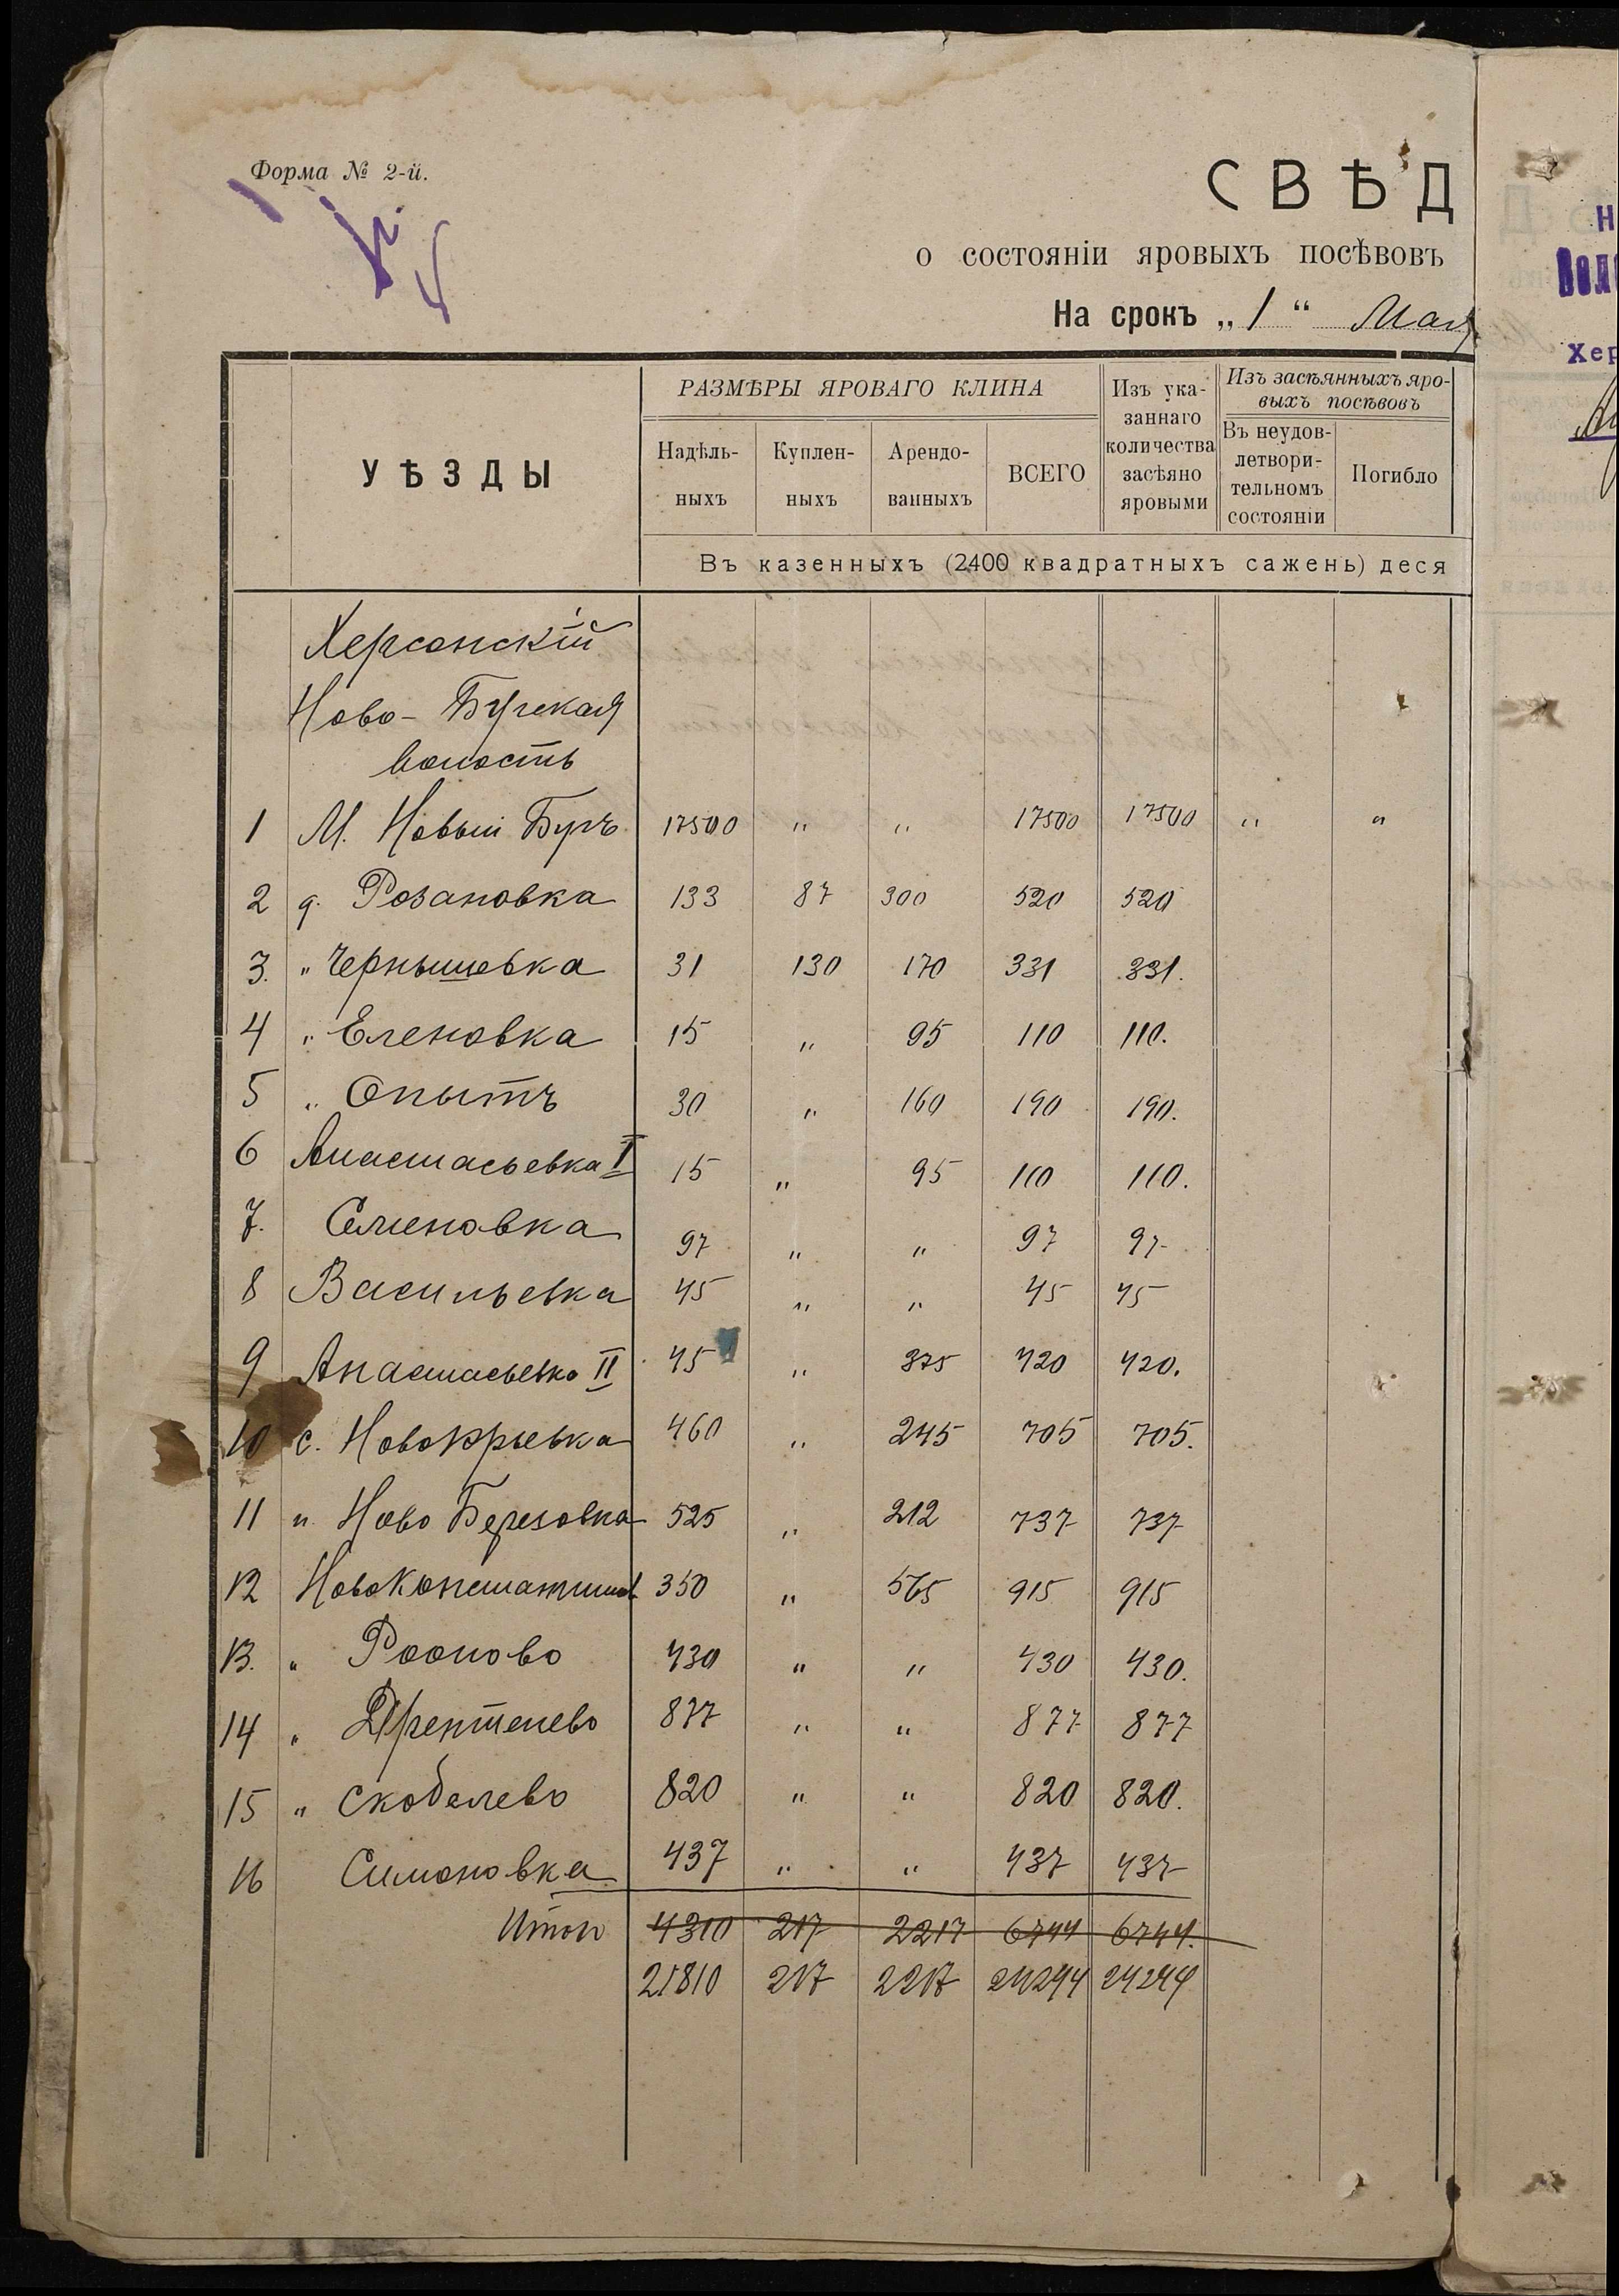 Форма № 2-й.
СВѢД
о состояніи яровыхъ посѣвовъ
На срокъ „ 1 “ Мая
УѢЗДЫ
РАЗМѢРЫ ЯРОВАГО КЛИНА
Надѣль-
ныхъ
Куплен-
ныхъ
Арендо-
ванныхъ
ВСЕГО
Изъ ука-
заннаго
количества
засѣяно
яровыми
Изъ засѣянныхъ яро-
выхъ посѣвовъ
Въ неудов-
летвори-
тельномъ
состояніи
Погибло
Въ казенныхъ (2400 квадратныхъ сажень) деся
Херсонскій
Ново-Бугская
волость
1 М. Новый Бугъ 17500 " " 17500 17500 " "
2 д. Розановка 133 87 300 520 520
3. " Чернышевка 31 130 170 331 331.
4 " Еленовка 15 " 95 110 110.
5 " Опытъ 30 " 160 190 190.
6 Анастасьевка I 15 " 95 110 110.
7. Семеновка 97 " " 97 97
8 Васильевка 45 " " 45 45
9 Анастасьевка II 45 " 375 420 420.
10 с. Новоюрьевка 460 " 245 705 705.
11 " Ново Березовка 525 " 212 737 737
12 Новоконстантинов 350 " 565 915 915
13. " Роопово 430 " " 430 430.
14 " Дрентелево 877 " " 877 877
15 " Скобелево 820 " " 820 820.
16 Симоновка 437 " " 437 437
Итого 4310 217 2217 6744 6744.
21810 217 2217 24244 24244